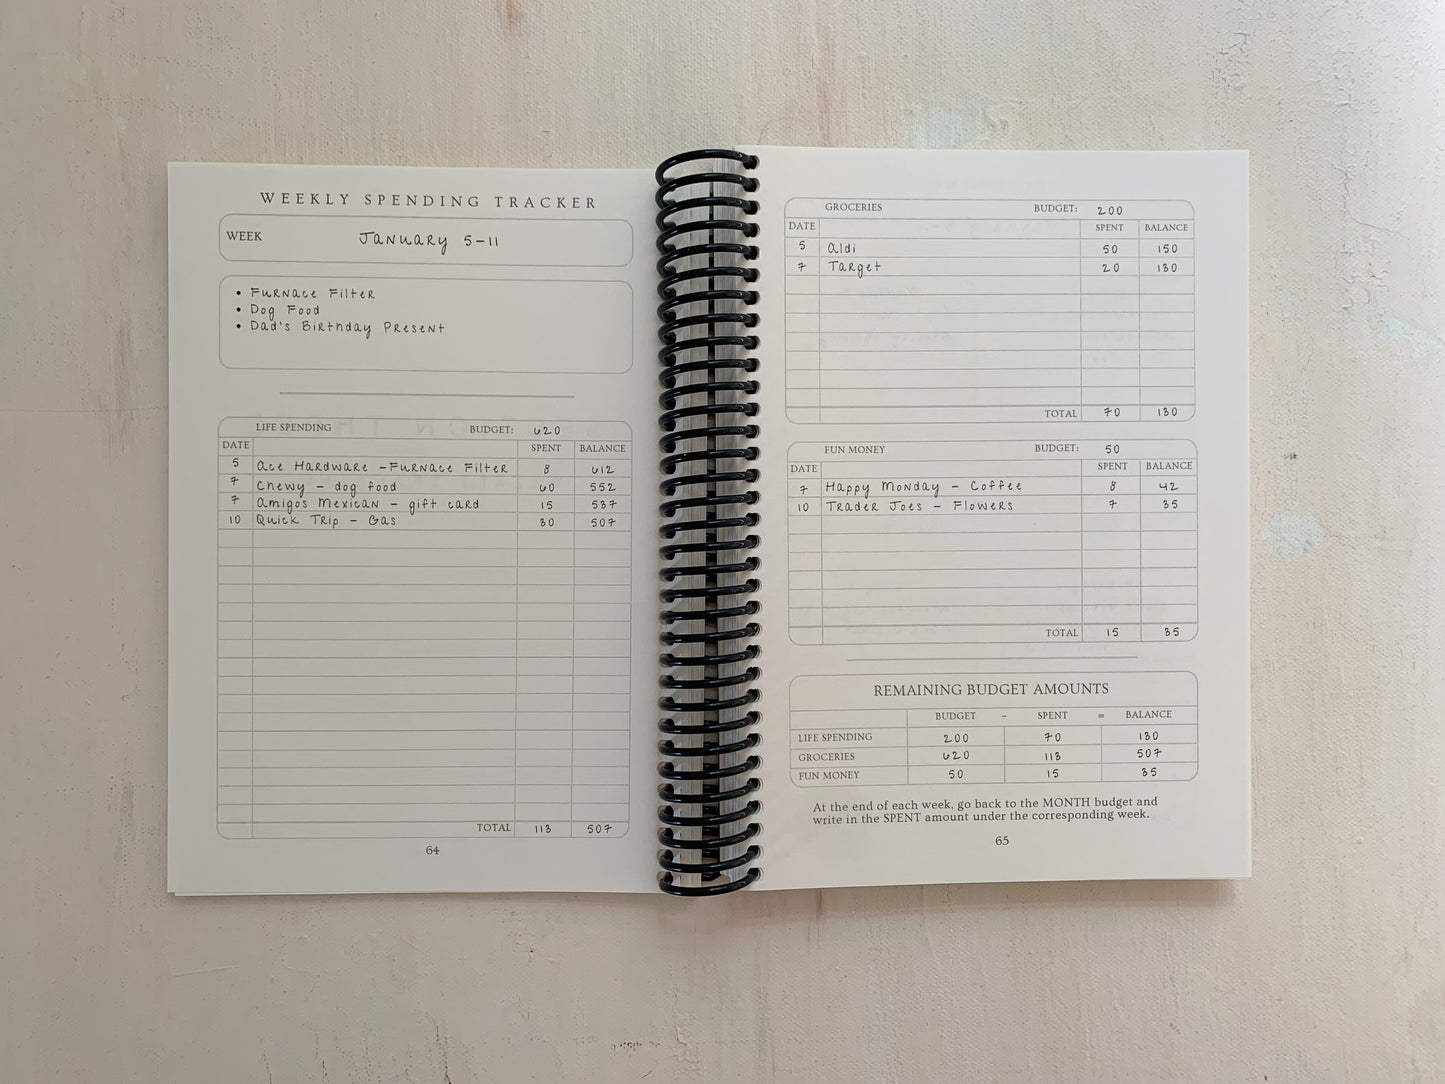 WEEKLY SPENDING TRACKER
WEEK JANUARY 5-11
• FURNACE FILTER
• DOG FOOD
• DAD'S BIRTHDAY PRESENT
LIFE SPENDING BUDGET: 620
DATE SPENT BALANCE
5 ACE HARDWARE - FURNACE FILTER 8 612
7 CHEWY - dog food 60 552
7 AMIGOS MEXICAN - gift CARD 15 537
10 QUICK TRIP - GAS 30 507
TOTAL 113 507
64
GROCERIES BUDGET: 200
DATE SPENT BALANCE
5 aldi 50 150
7 TARget 20 130
TOTAL 70 130
FUN MONEY BUDGET: 50
DATE SPENT BALANCE
7 HAPPY MONDAY - COFFEE 8 42
10 TRADER JOES - FLOWERS 7 35
TOTAL 15 35
REMAINING BUDGET AMOUNTS
BUDGET - SPENT = BALANCE
LIFE SPENDING 200 70 130
GROCERIES 620 113 507
FUN MONEY 50 15 35
At the end of each week, go back to the MONTH budget and
write in the SPENT amount under the corresponding week.
65